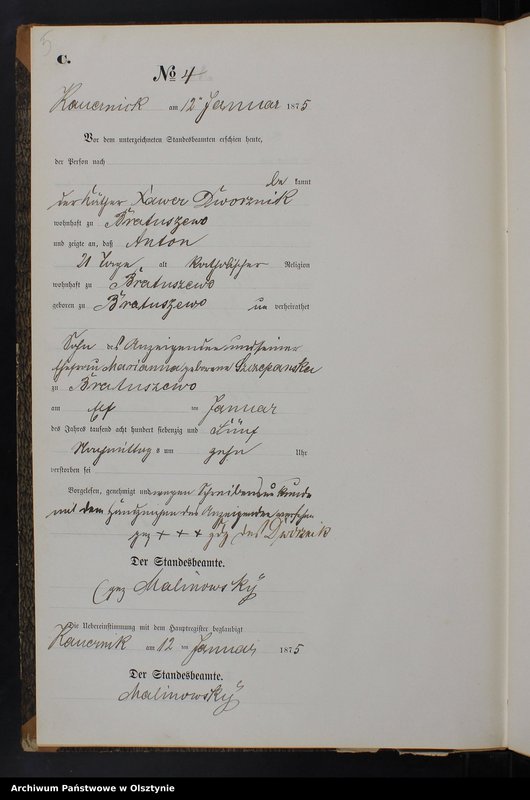 5
C.
No 4
Kauernick am 12 Januar 1875
Vor dem unterzeichneten Standesbeamten erschien heute,
der Person nach
be kannt
der Käthner Xawer Dworznik
wohnhaft zu Bratuszewo
und zeigte an, daß Anton
21 Tage alt katholischer Religion
wohnhaft zu Bratuszewo
geboren zu Bratuszewo un verheirathet
Sohn des Anzeigenden und seiner
Ehefrau Marianna geborene Szczepanska
zu Bratuszewo
am Elf ten Januar
des Jahres tausend acht hundert siebenzig und Fünf
Nachmittags um zehn Uhr
verstorben sei
Vorgelesen, genehmigt und wegen Schreibensunkunde
mit dem Handzeichen des Anzeigenden versehen
gez + + + Hdz des Dworznik
Der Standesbeamte.
(gez Malinowsky
Die Uebereinstimmung mit dem Hauptregister beglaubigt
Kauernik am 12 ten Januar 1875
Der Standesbeamte.
Malinowsky
Archiwum Państwowe w Olsztynie